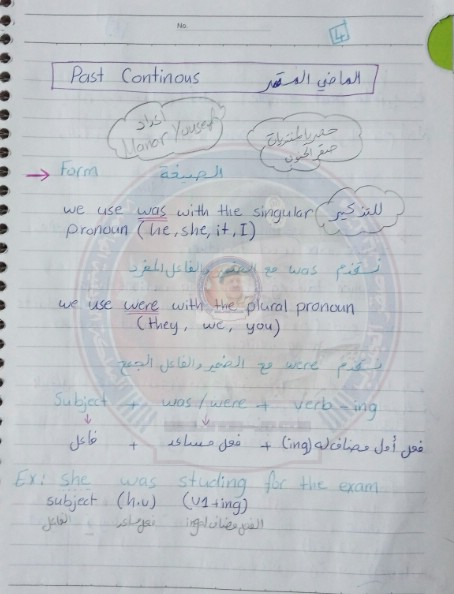 No.
4
Past Continous الماضي المستمر
اعداد
حصريا لمنتديات
صقر الجنوب
Form الصيغة
we use was with the singular للتذكير
pronoun (he, she, it, I)
نستخدم was مع الضمير والفاعل المفرد
we use were with the plural pronoun
(they, we, you)
نستخدم were مع الضمير والفاعل الجمع
Subject + was/were + verb-ing
فاعل + فعل مساعد + فعل أول مضاف له (ing)
Ex: she was studing for the exam
subject (h.v) (v1+ing)
الفاعل فعل مساعد الفعل مضاف له ing